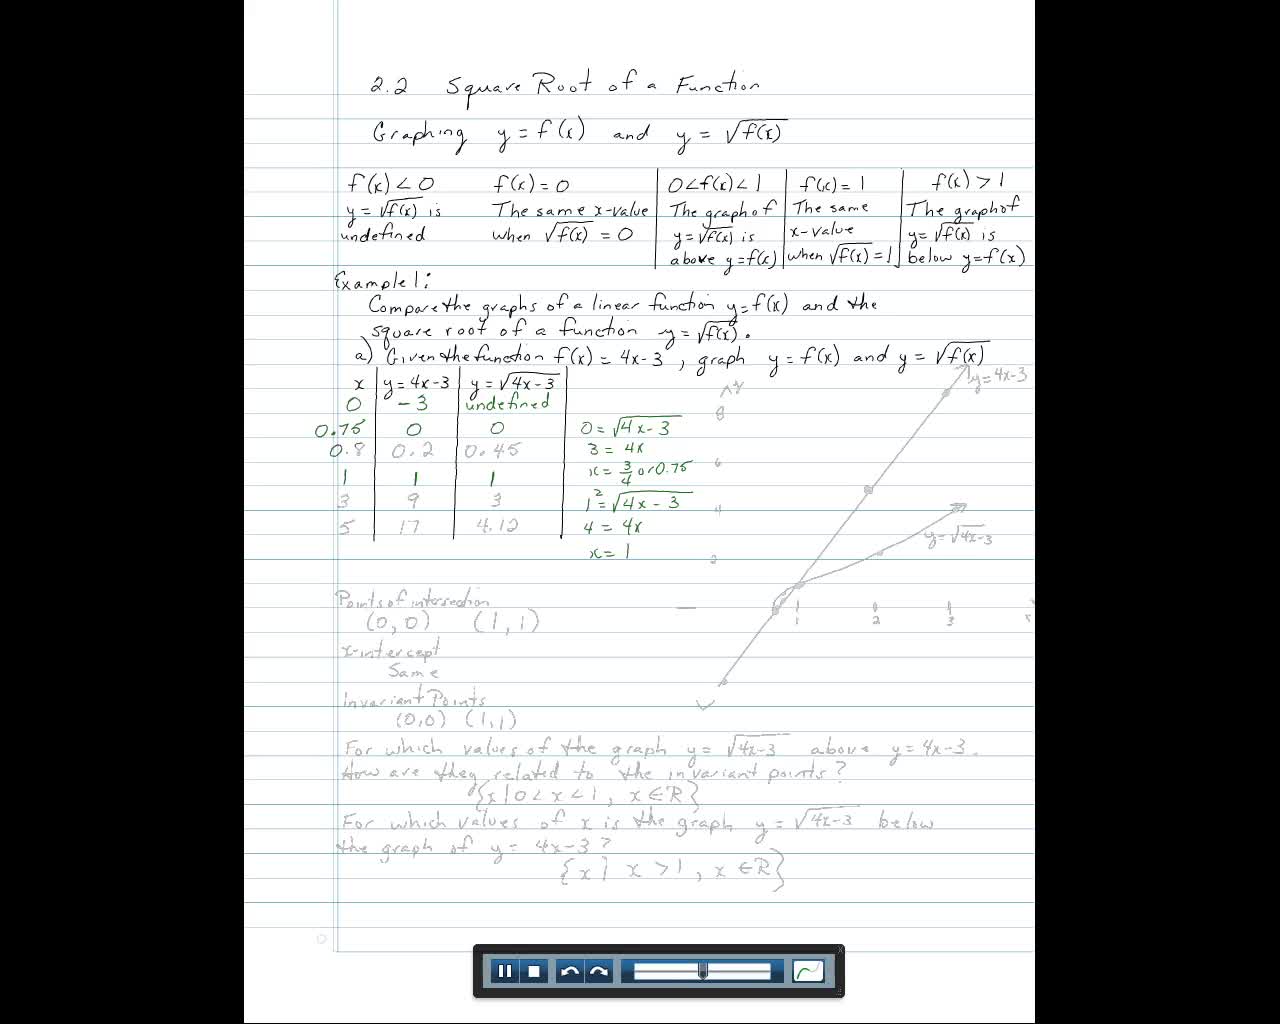 2.2 Square Root of a Function
Graphing y = f(x) and y = √f(x)
f(x) < 0 f(x) = 0 0 < f(x) < 1 f(x) = 1 f(x) > 1
y = √f(x) is The same x-value The graph of The same The graph of
undefined when √f(x) = 0 y = √f(x) is x-value y = √f(x) is
above y = f(x) when √f(x) = 1 below y = f(x)
Example 1:
Compare the graphs of a linear function y = f(x) and the
square root of a function y = √f(x).
a) Given the function f(x) = 4x-3, graph y = f(x) and y = √f(x)
x y = 4x-3 y = √4x-3
0 -3 undefined
0.75 0 0 0 = √4x-3
0.8 0.2 0.45 3 = 4x
x = 3/4 or 0.75
1 1 1
3 9 3 1² = √4x-3
5 17 4.12 4 = 4x
x = 1
y
8
6
4
2
1 2 3
x
y = 4x-3
y = √4x-3
Points of intersection
(0,0) (1,1)
x-intercept
Same
Invariant Points
(0,0) (1,1)
For which values of the graph y = √4x-3 above y = 4x-3.
How are they related to the invariant points?
{x | 0 < x < 1, x ∈ R}
For which values of x is the graph y = √4x-3 below
the graph of y = 4x-3?
{x | x > 1, x ∈ R}